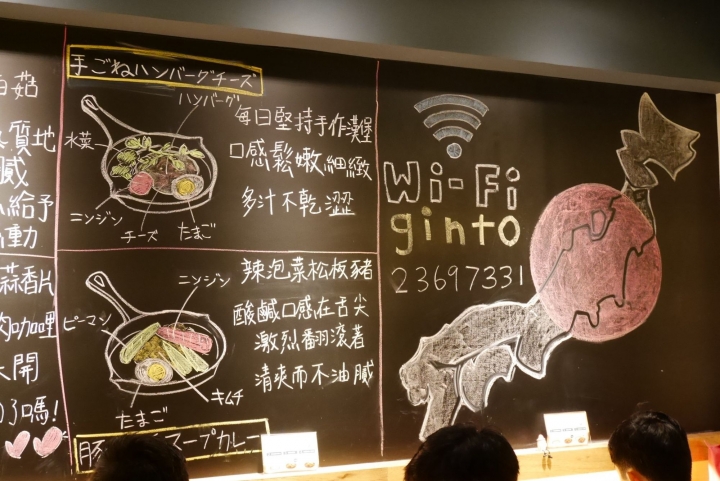 白菇
質地
膩
給予
動
蒜香片
肉咖哩
大開
了嗎!
手ごねハンバーグチーズ
ハンバーグ
水菜
ニンジン
チーズ
たまご
每日堅持手作漢堡
口感鬆嫩細緻
多汁不乾澀
ニンジン
ピーマン
キムチ
たまご
辣泡菜松板豬
酸鹹口感在舌尖
激烈翻滾著
清爽而不油膩
豚
スープカレー
Wi-Fi
ginto
23697331